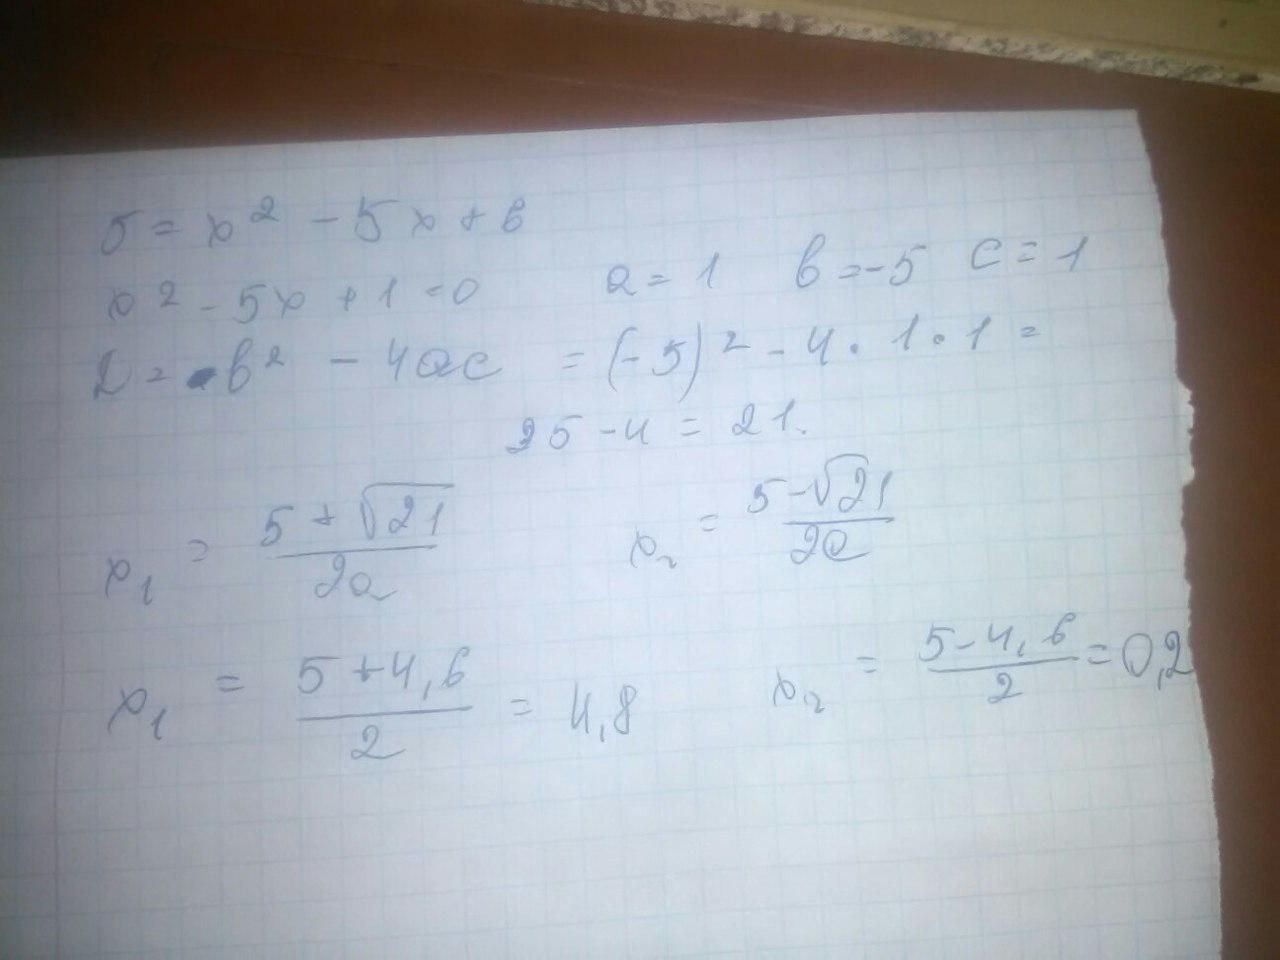 5 = x² - 5x + 6
x² - 5x + 1 = 0 a = 1 b = -5 c = 1
D = b² - 4ac = (-5)² - 4 · 1 · 1 =
25 - 4 = 21.
x₁ = (5 + √21)/2a x₂ = (5 - √21)/2a
x₁ = (5 + 4,6)/2 = 4,8 x₂ = (5 - 4,6)/2 = 0,2